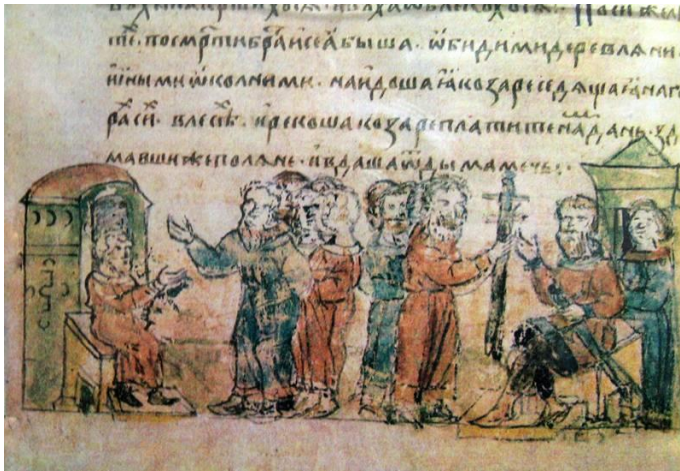 По си же лѣ
тѣ. по смр҃ти бра҃и сеа быша. ѡбидими деревлѧни.
иными ѡколними. наидоша ꙗ козаре седѧщаꙗ на го
ра си. в лесѣ. и рекоша козаре платите на дань. зд
мавши же полѧне. и вдаша ѿ дыма мечь:.